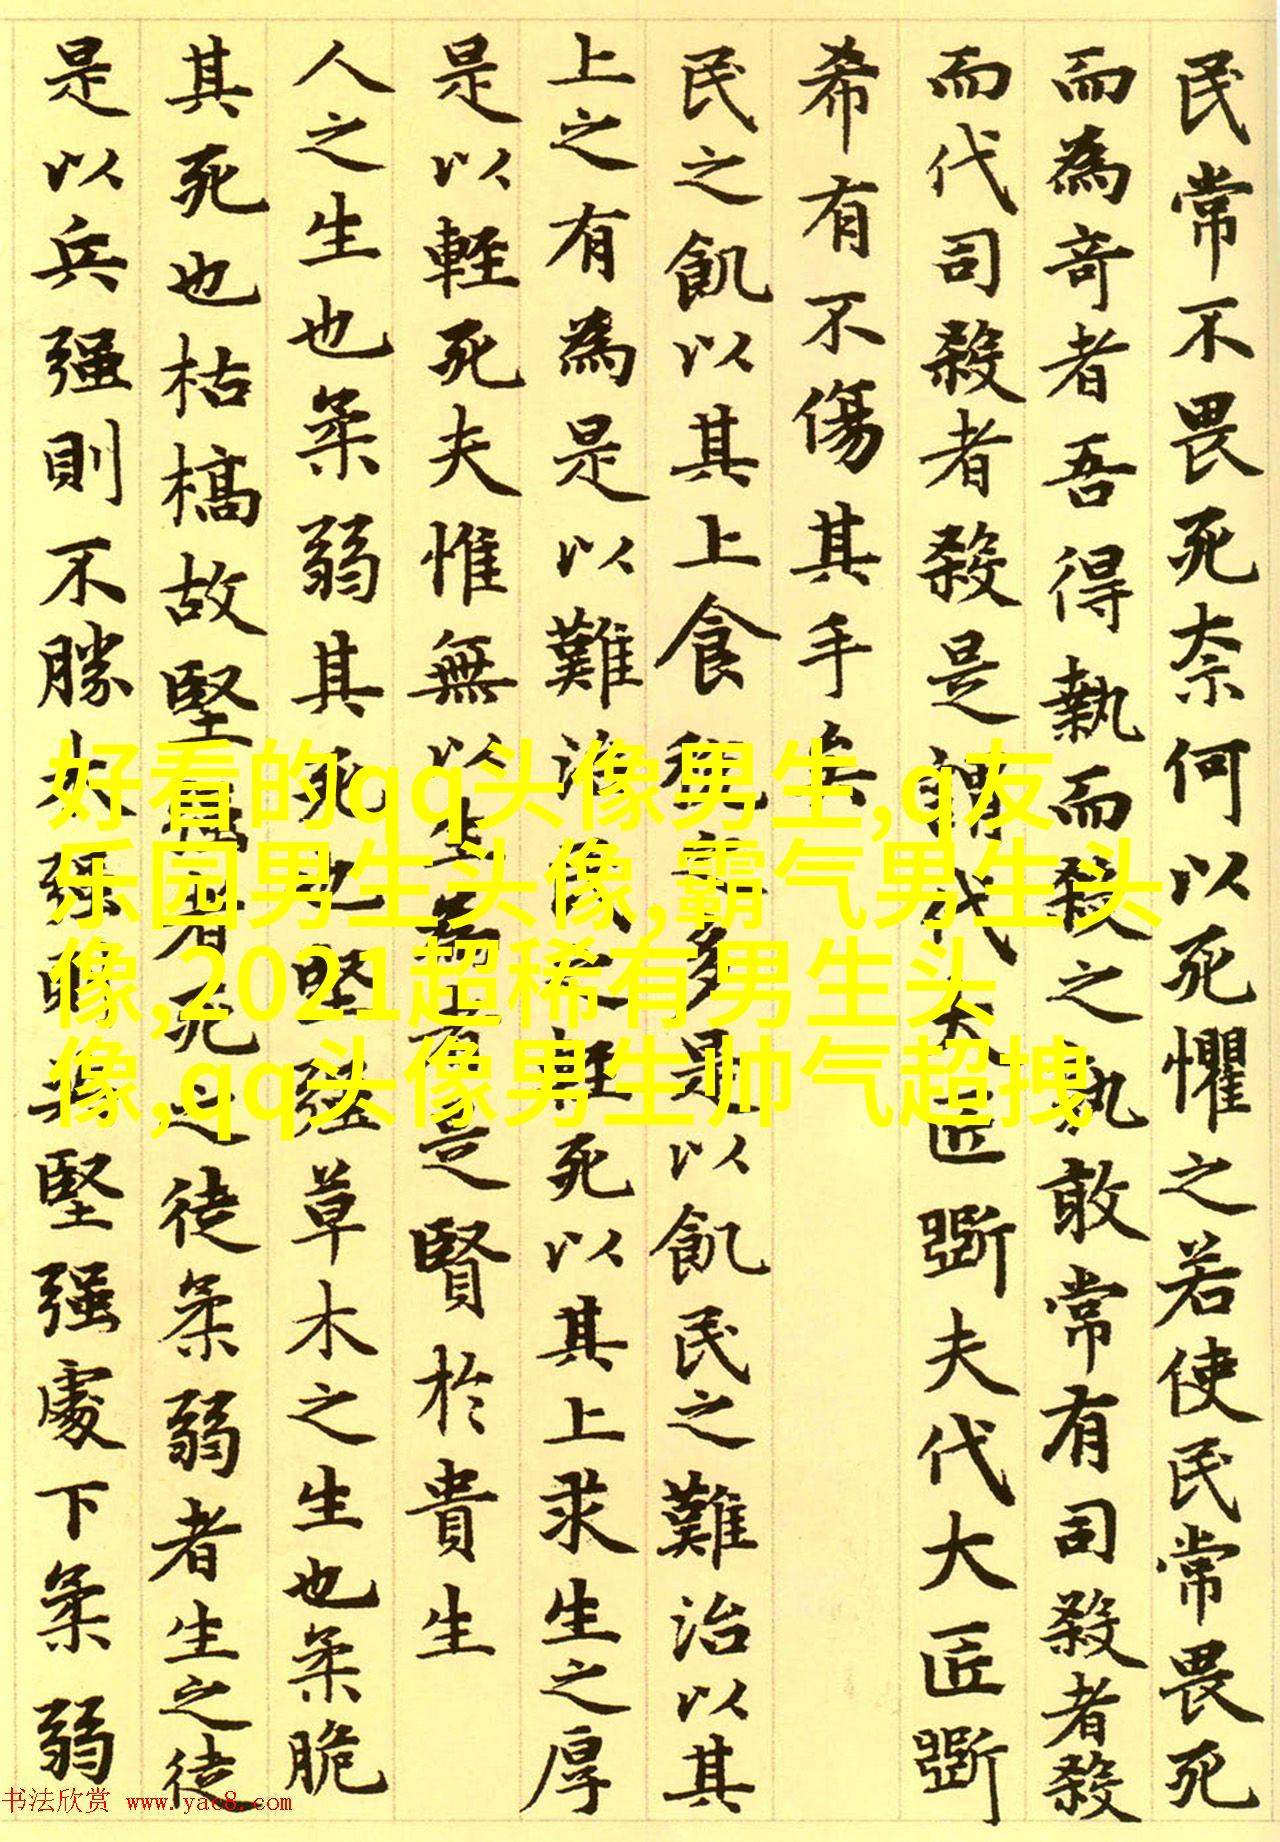 民常不畏死柰何以死懼之若使民常畏死
而為奇者吾得執而殺之孰敢常有司殺者殺
而代司殺者殺是謂代大匠斲夫代大匠斲
希有不傷其手矣
民之飢以其上食税之多是以飢民之難治以其
上之有為是以難治民之輕死以其上求生之厚
是以輕死夫惟無以生為者是賢於貴生
人之生也柔弱其死也堅强草木之生也柔脆
其死也枯槁故堅强者死之徒柔弱者生之徒
是以兵强則不勝木强則共堅强處下柔弱
好看的qq头像男生,q友
乐园男生头像,霸气男生头
像,2021超稀有男生头
像,qq头像男生帅气超拽
书法欣赏 www.yac8.com